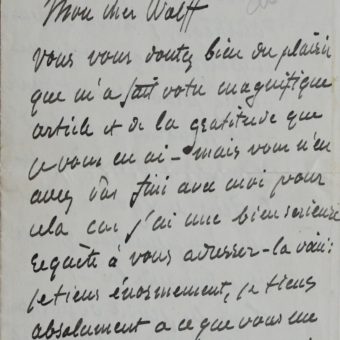 Mon cher Wolff
vous vous doutez bien du plaisir
que m'a fait votre magnifique
article et de la gratitude que
je vous en ai - mais vous n'en
avez pas fini avec moi pour
cela car j'ai une bien serieuse
requête à vous adresser - la voici :
je tiens énormement, je tiens
absolument a ce que vous me